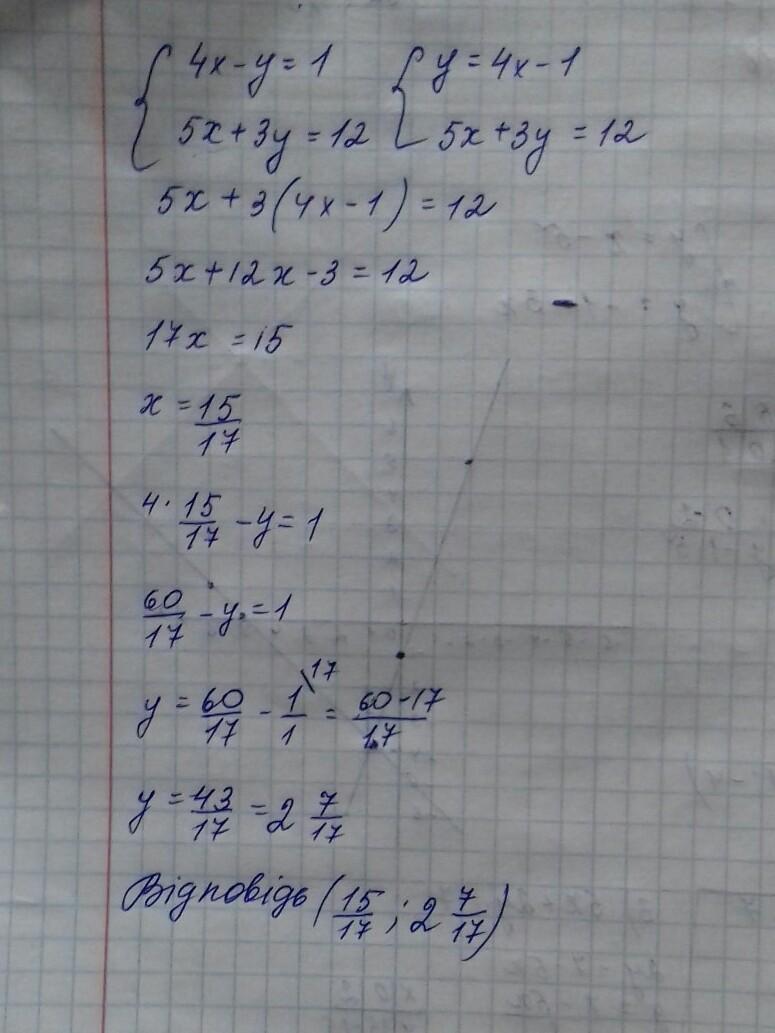 4x - y = 1    y = 4x - 1
5x + 3y = 12    5x + 3y = 12
5x + 3(4x - 1) = 12
5x + 12x - 3 = 12
17x = 15
x = 15/17
4 · 15/17 - y = 1
60/17 - y = 1
y = 60/17 - 1/1 \17 = 60-17/17
y = 43/17 = 2 7/17
Відповідь (15/17 ; 2 7/17)